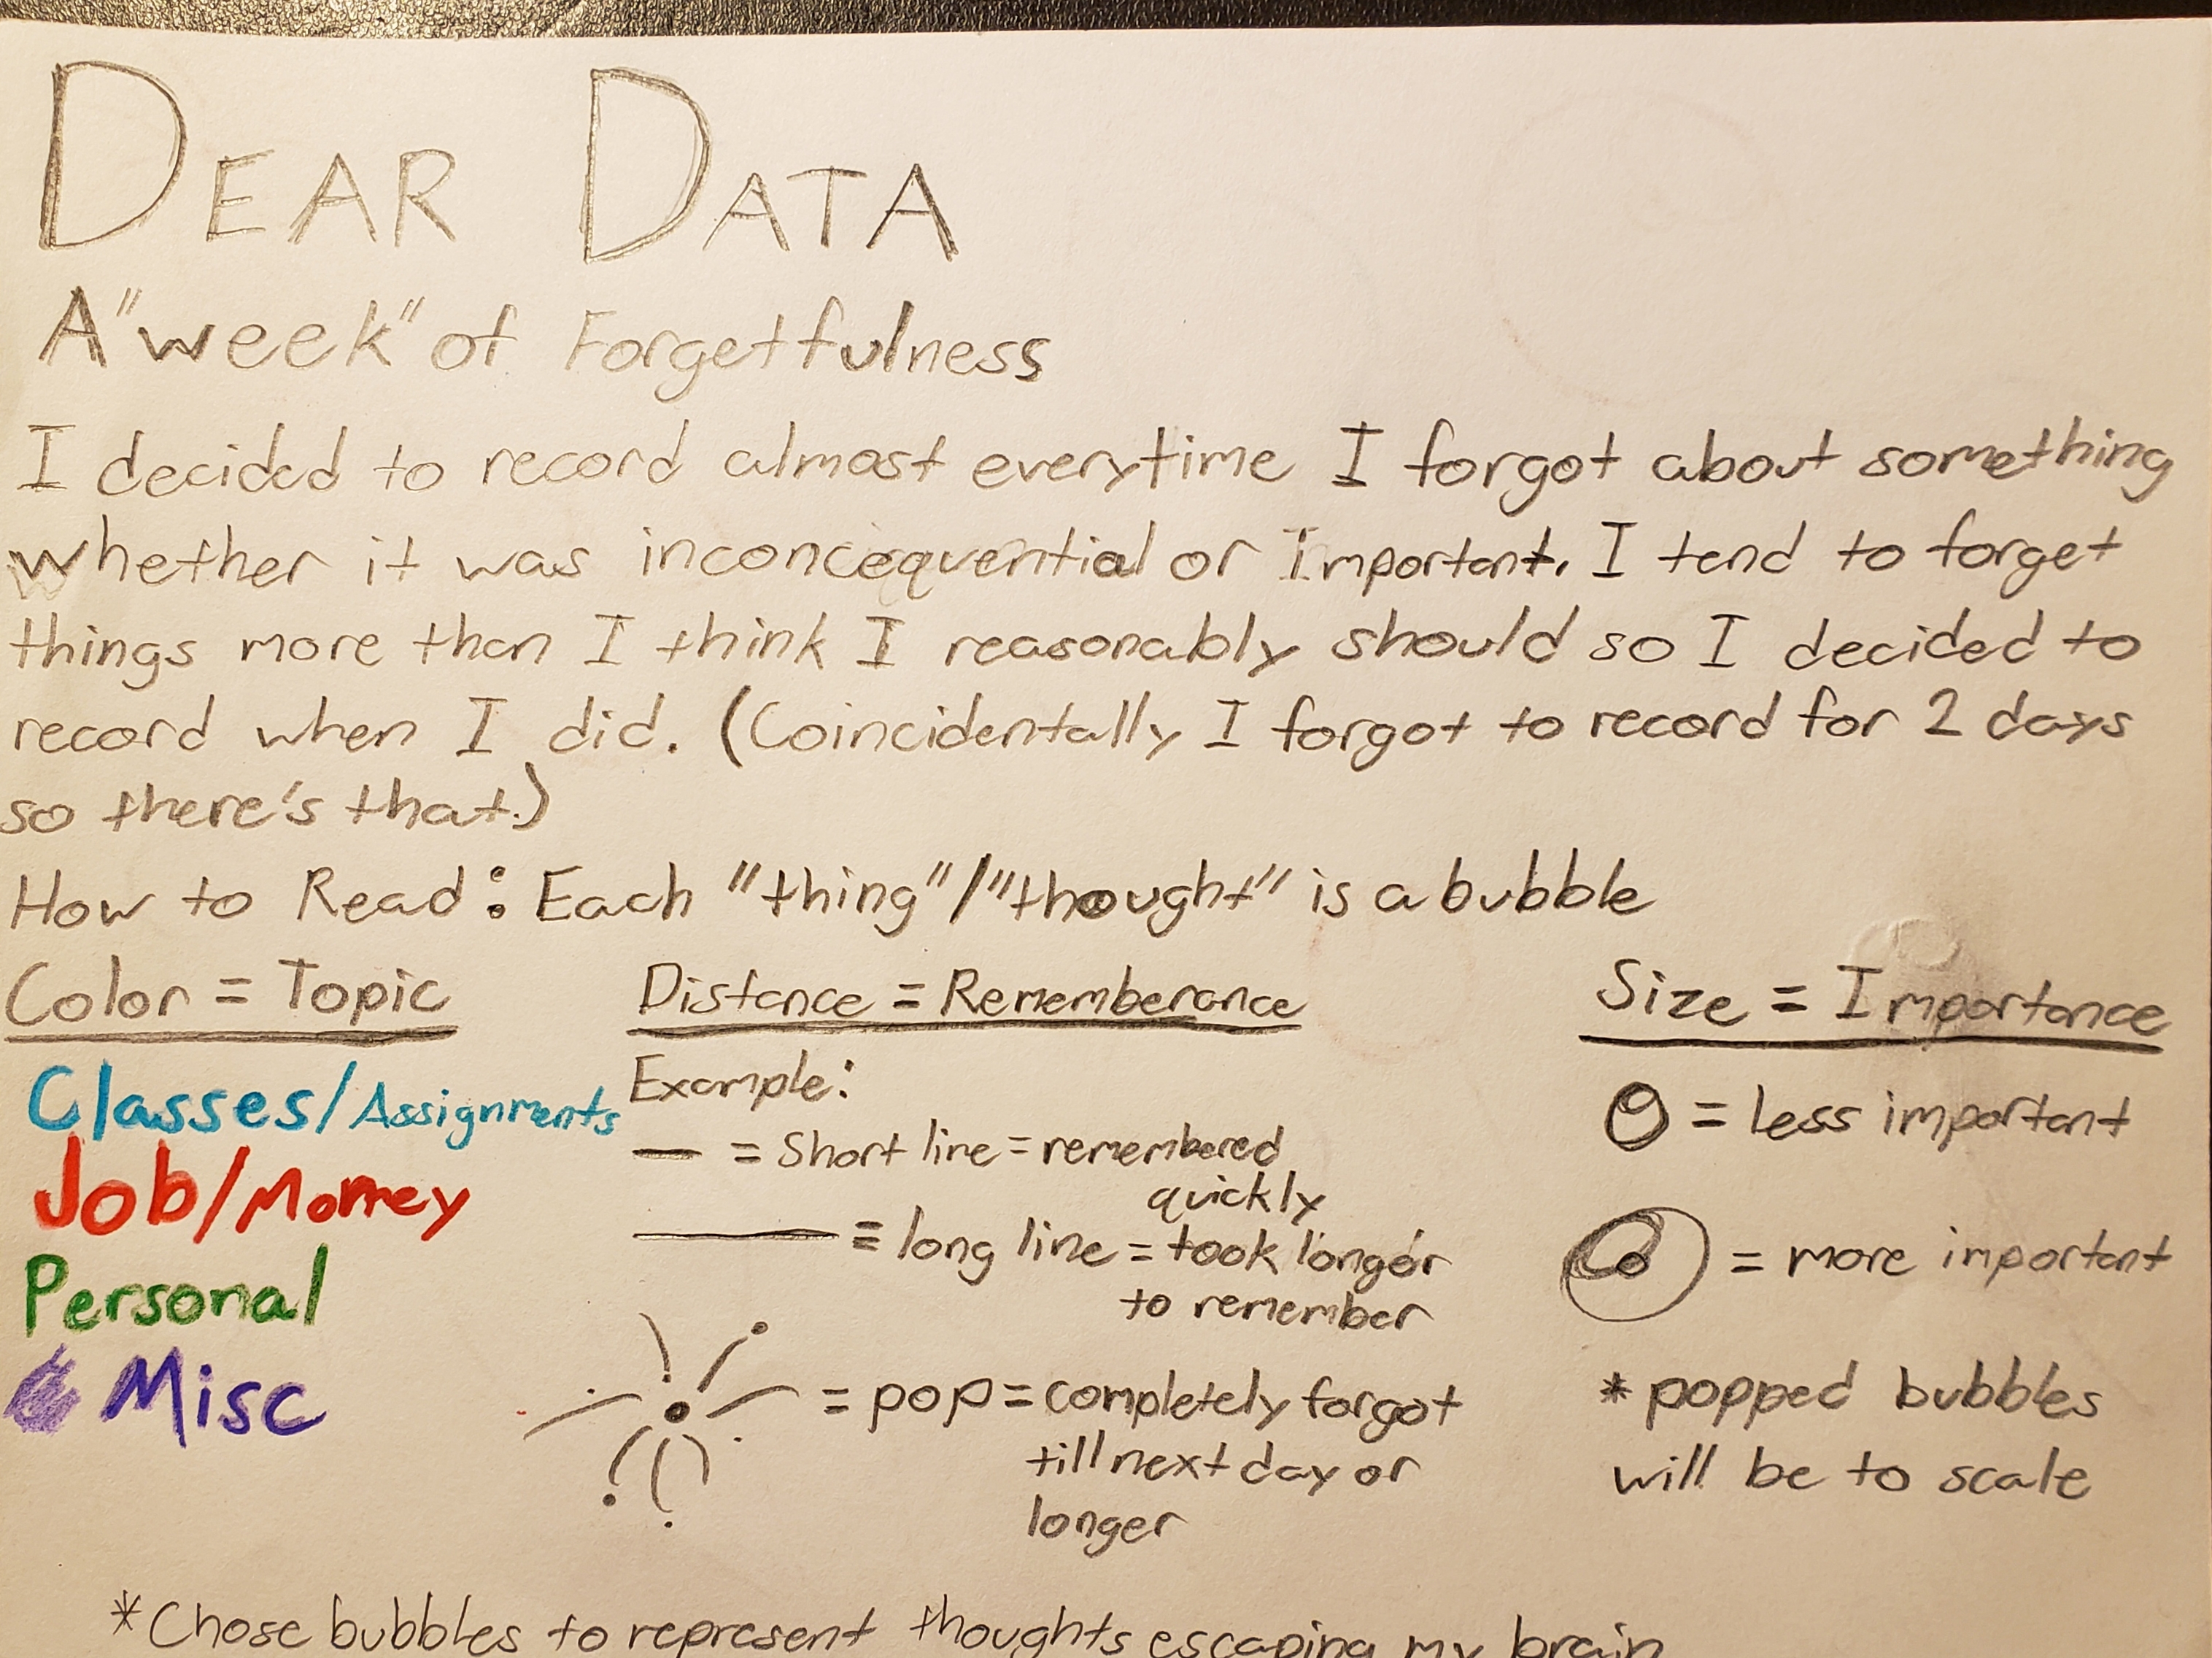 DEAR DATA
A "week" of Forgetfulness
I decided to record almost everytime I forgot about something
whether it was inconcequential or Important. I tend to forget
things more than I think I reasonably should so I decided to
record when I did. (Coincidentally I forgot to record for 2 days
so there's that.)
How to Read: Each "thing"/"thought" is a bubble
Color = Topic
Classes/Assignments
Job/Money
Personal
Misc
Distance = Rememberance
Example:
= Short line = remembered
quickly
= long line = took longer
to remember
= pop = completely forgot
till next day or
longer
Size = Importance
= less important
= more important
*popped bubbles
will be to scale
*Chose bubbles to represent thoughts escaping my brain